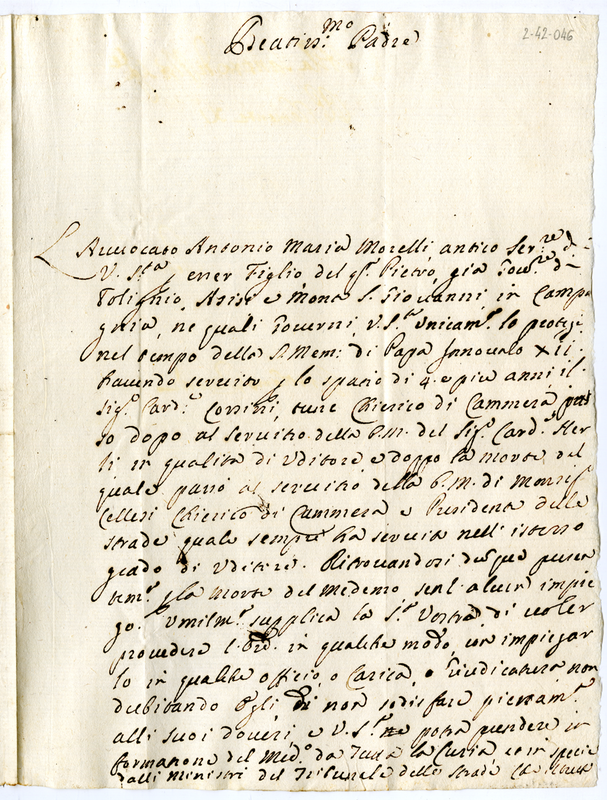 Beatiss.mo Padre
2-42-046
L'Avvocato Antonio Maria Morelli, antico Ser.re di
V. S.tà, ener Figlio del q. Pietro, già Gov.re di
Foligno, Assisi e Monte S. Giovanni in Campa
gna, ne quali Governi, V. S.tà unicam.e lo protege
nel tempo della S. Mem: di Papa Innocenzo XII
havendo servito p lo spazio di 4. e più anni il
Sig.r Card.l Corsini, tunc Chierico di Cammera, pas
sò dopo al servitio della b.m. del Sig.r Card.l
in qualità di Uditore, e doppo la morte del
quale passò al servitio della b.m. di Monsig.r
Cellesi Chierico di Cammera e Presidente delle
strade quale sempre ha servito nell'istesso
grado di Uditore. Ritrovandosi
p la morte del medemo, senz'alcun impie
go. Umilm.e supplica la S.tà Vostra di voler
provedere l'Ore. in qualche modo, con impiegar
lo in qualche officio, o Carica, o Giudicatura non
dubitando Egli di non sodisfare pienam.e
alli suoi doveri, e V. S.tà ne potrà prendere in
formazione del Med.o da Tutta la Curia, e in specie
dalli Ministri del Tribunale delle strade